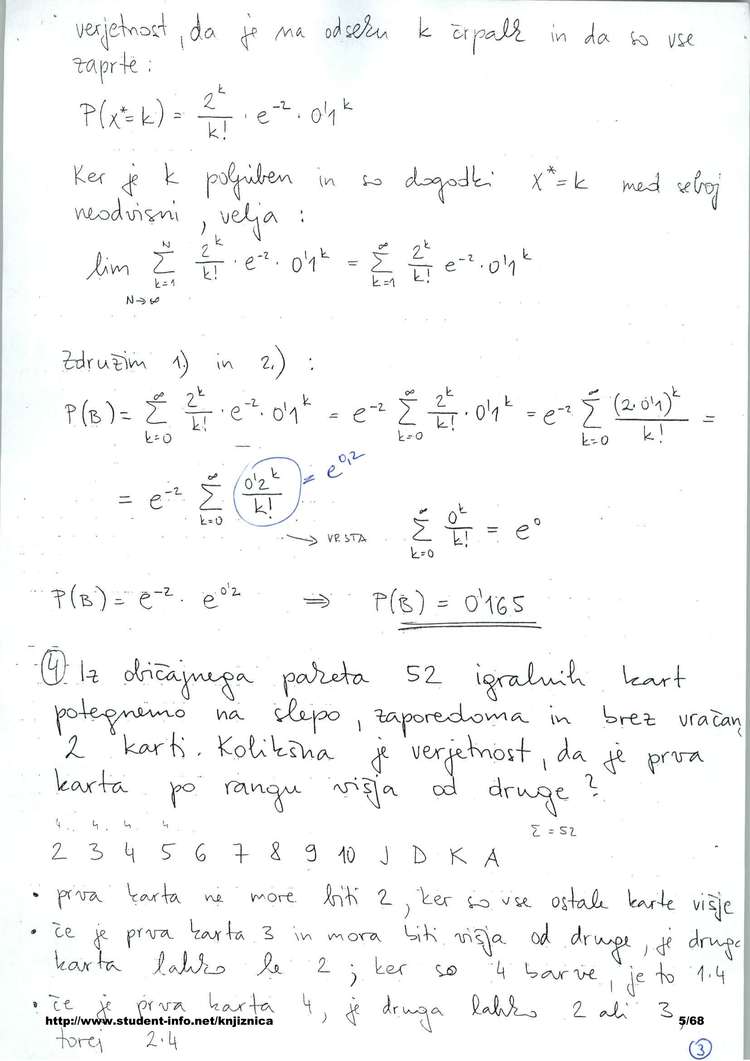 verjetnost, da je na odseku k črpalk in da so vse
zaprte :
P(x*=k) = 2^k/k! · e^-2 · 0'1^k
Ker je k poljuben in so dogodki x*=k med seboj
neodvisni, velja :
lim N→∞ Σ k=1 N 2^k/k! · e^-2 · 0'1^k = Σ k=1 ∞ 2^k/k! e^-2 · 0'1^k
Združim 1.) in 2.) :
P(B) = Σ k=0 ∞ 2^k/k! · e^-2 · 0'1^k = e^-2 Σ k=0 ∞ 2^k/k! · 0'1^k = e^-2 Σ k=0 ∞ (2·0'1)^k/k! =
= e^-2 Σ k=0 ∞ 0'2^k/k! = e^0,2
→ VRSTA Σ k=0 ∞ 0^k/k! = e^0
P(B) = e^-2 · e^0'2 ⇒ P(B) = 0'165
④ Iz običajnega paketa 52 igralnih kart
potegnemo na slepo, zaporedoma in brez vračan
2 karti. Kolikšna je verjetnost, da je prva
karta po rangu višja od druge?
4 4 4 4 Σ = 52
2 3 4 5 6 7 8 9 10 J D K A
• prva karta ne more biti 2, ker so vse ostale karte višje
• če je prva karta 3 in mora biti višja od druge, je druga
karta lahko le 2 ; ker so 4 barve, je to 1·4
• če je prva karta 4, je druga lahko 2 ali 3,
http://www.student-info.net/knjiznica 5/68
torej 2·4
③